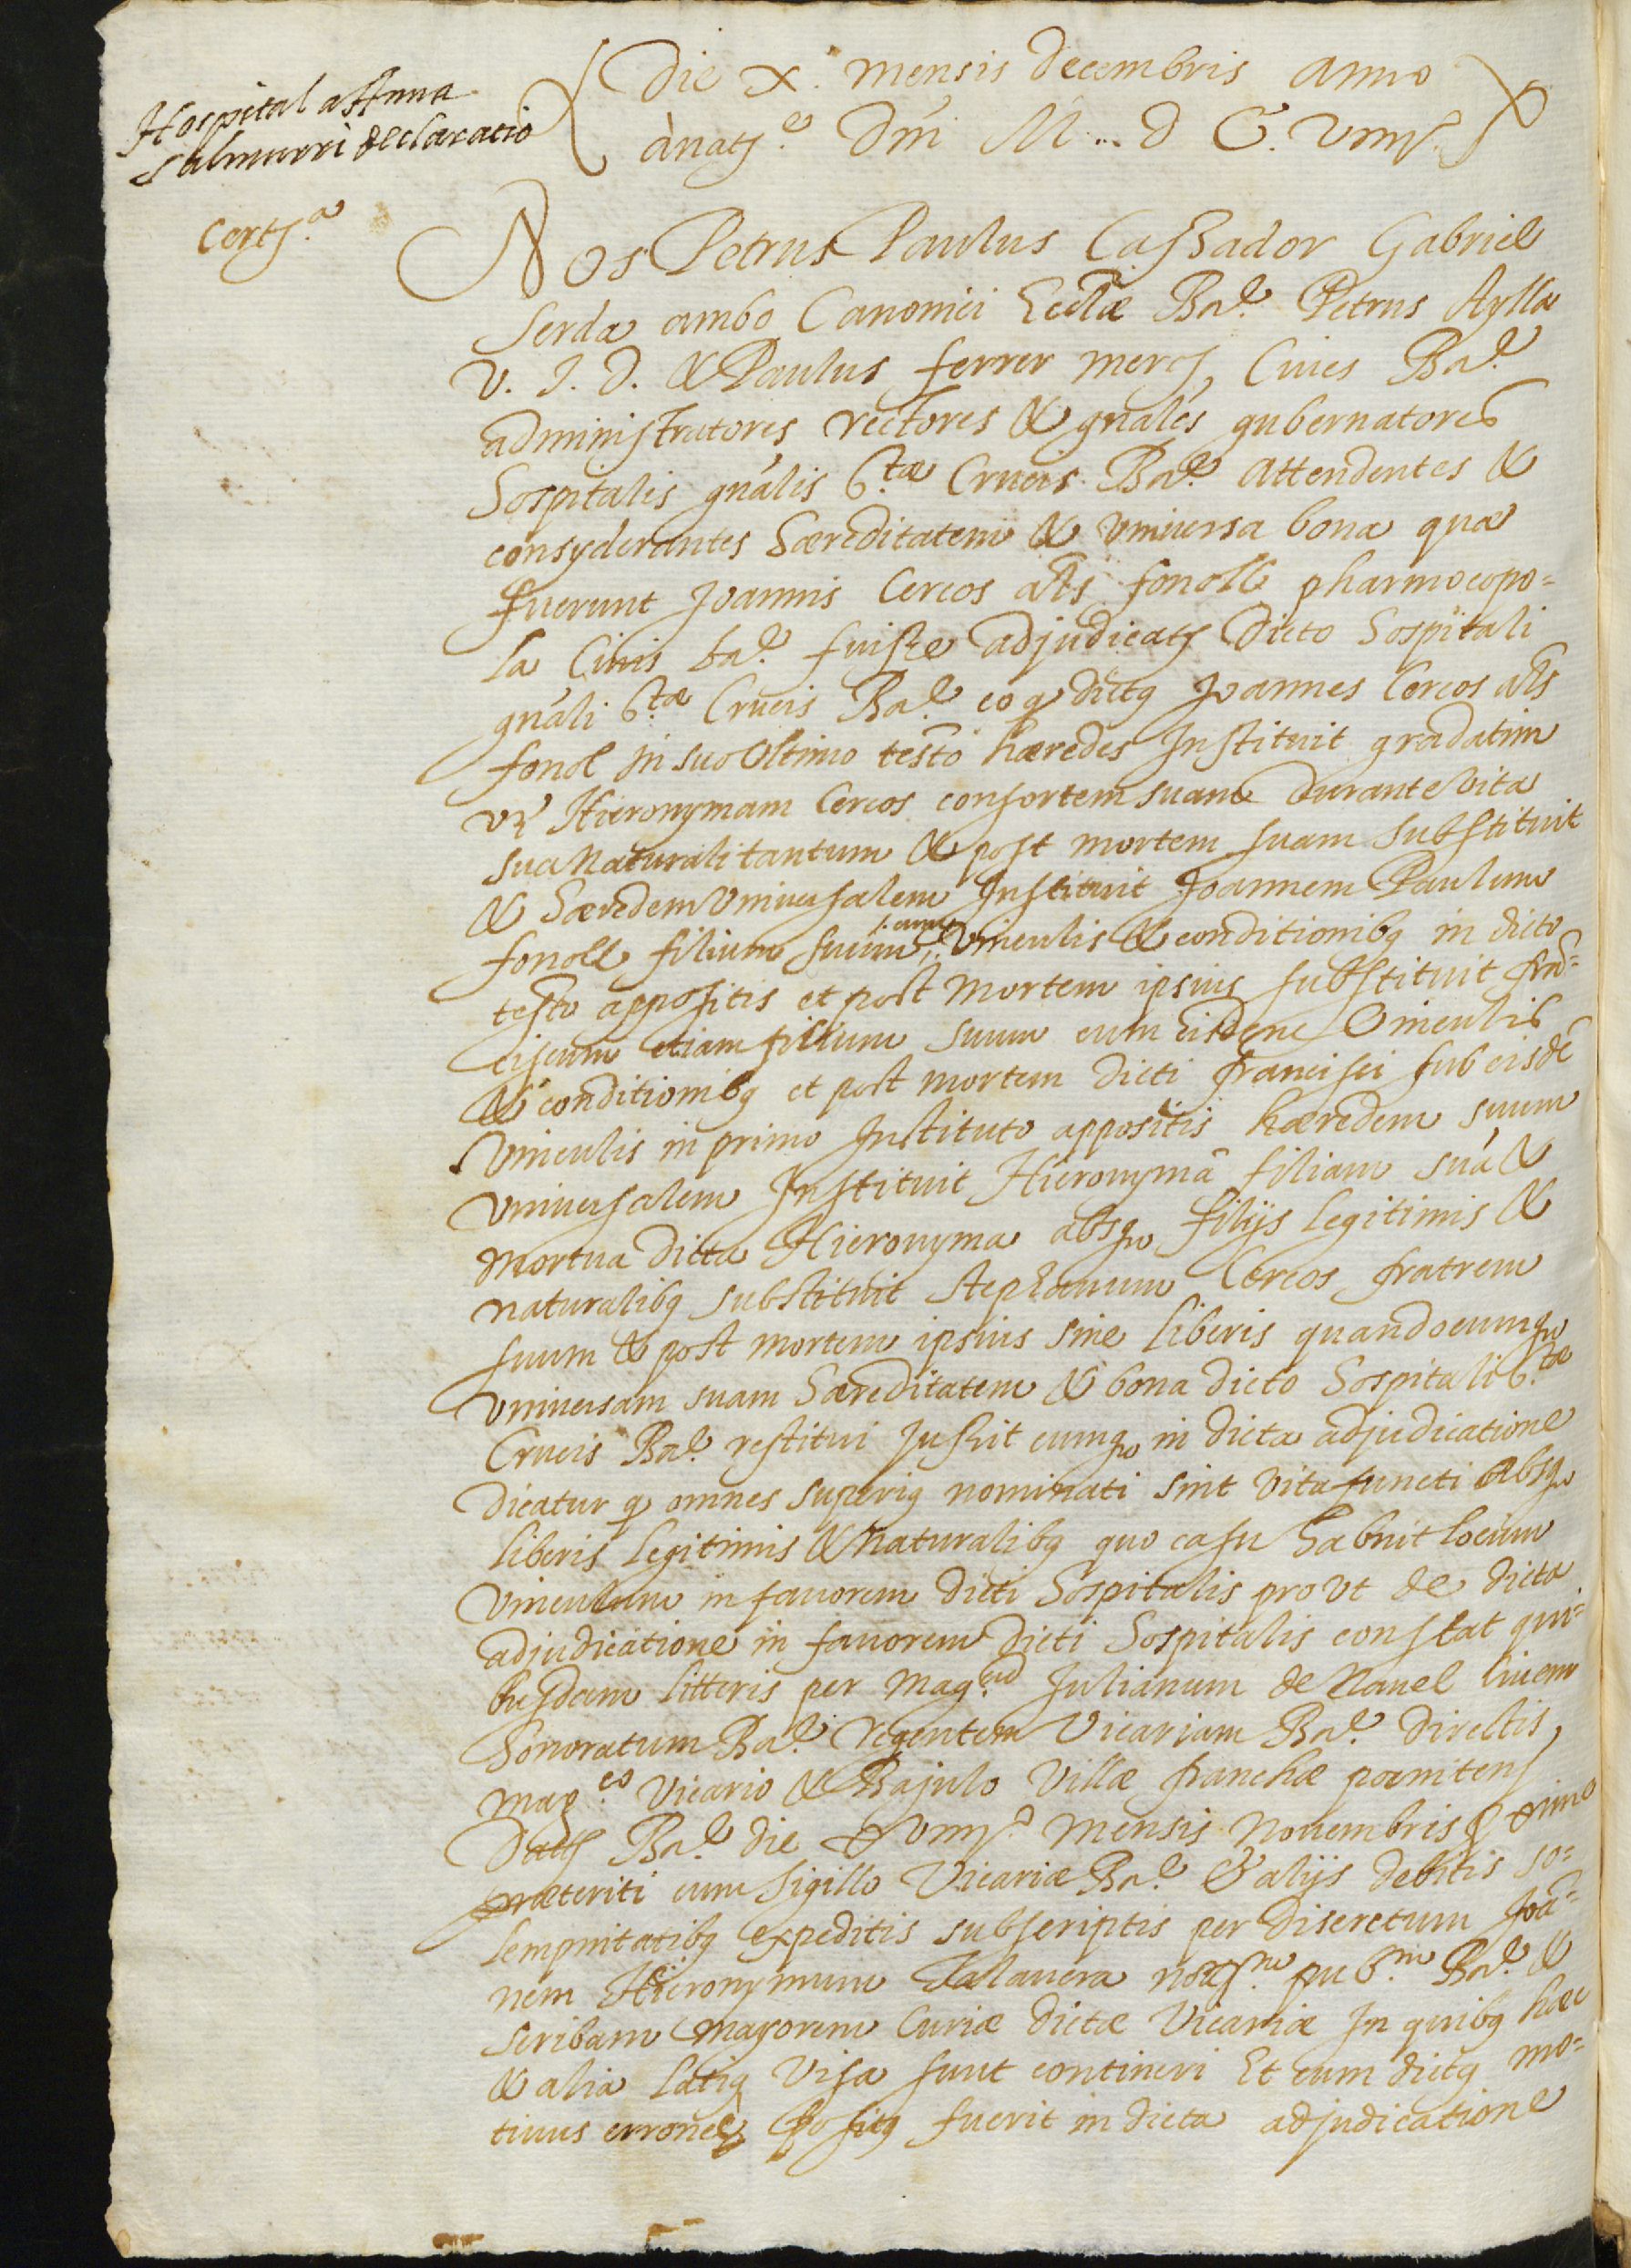 Hospital a Anna
Salmurri declaratio
Certf.ª
Die X. mensis Decembris anno
à natj.e Dni M... D C. Viiij.
Nos Petrus Paulus Cassador Gabriel
Serda ambo Canonici Ecclæ Bar.e Petrus Aylla
V. J. D. & Paulus ferrer mercs Cives Bar.e
administratores rectores & gnales gubernatores
Hospitalis gnalis S.tæ Crucis Bar.e attendentes &
consyderantes Hæreditatem & universa bona quæ
fuerunt Joannis Cercos als fonoll pharmocopo=
la Civis bar.e fuisse adjudicats Dicto Hospitali
gnali S.tæ Crucis Bar.e eo q dictus Joannes Cercos als
fonol in suo Ultimo testo hæredes Instituit gradatim
vz Hieronymam Cercos consortem suam Durante vita
sua Naturali tantum & post mortem suam substituit
& Hæredem Universalem Instituit Joannem Paulum
fonoll filium suum, vinculis & conditionibus in dicto
testo appositis et post mortem ipsius substituit fran=
ciscum etiam filium suum cum eisdem Vinculis
& conditionibus et post mortem Dicti francisci sub eisde
Vinculis in primo Instituto appositis hæredem suum
universalem Instituit Hieronymã filiam suã &
Mortua dicta Hieronyma absq filijs legitimis &
naturalibus substituit Stephanum Cercos fratrem
suum & post mortem ipsius sine liberis quandocumq
universam suam Hæreditatem & bona dicto Hospitali S.tæ
Crucis Bar.e restitui Jussit cumq in dicta adjudicatione
dicatur q omnes superius nominati sint vita functi absq
liberis legitimis & naturalibus quo casu Habuit locum
vinculum in favorem dicti Hospitalis pro Ut de dicta
adjudicatione in favorem dicti Hospitalis constat qui=
busdam litteris per mag.cum Julianum de Navel Civem
Honoratum Bar.e Regentem Vicariam Bar.e directis
mag.co Vicario & Bajulo Villæ franchæ pænitens
Datts Bar.e die xviiij.ª mensis Novembris p̃ximo
præteriti cum sigillo Vicariæ Bar.e & alijs debitis so=
lempnitatibus expeditis subscriptis per Discretum Joã=
nem Hieronymum Talavera nots.m pub.m Bar.e &
scribam mayorem Curiæ dictæ Vicariæ In quibus hæc
& alia latius Visa sunt contineri Et cum dictus mo=
tivus erronee positus fuerit in dicta adjudicatione